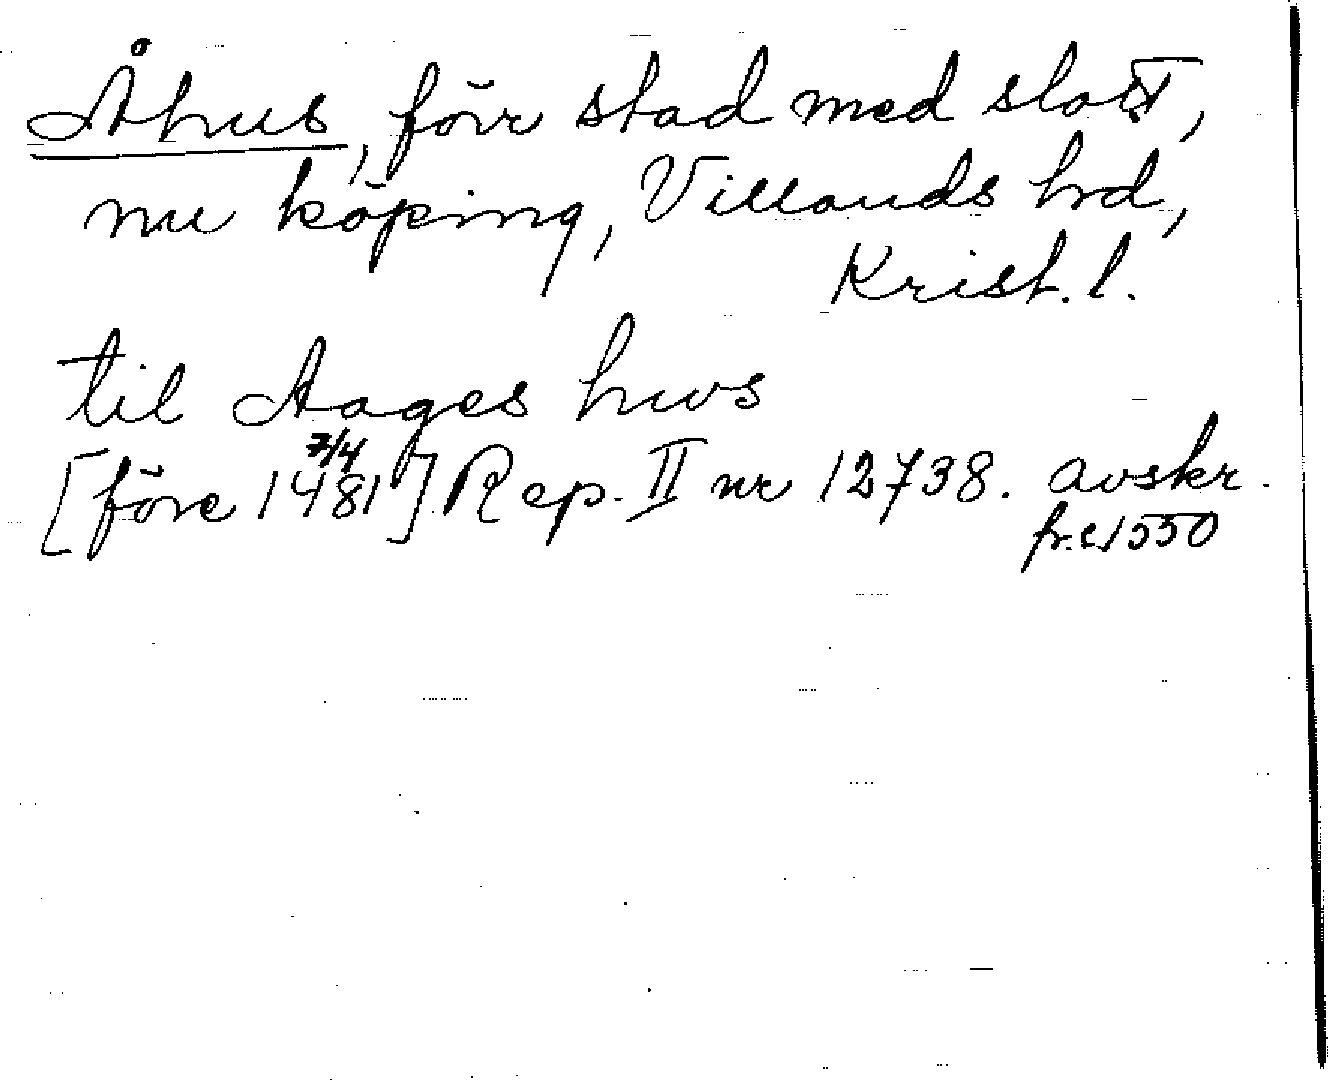 Åhus, förr stad med slott,
nu köping, Villands hrd,
Krist. l.
til Aages hws
[före 7/4 1481] Rep. II nr 12738. avskr.
fr. c. 1550